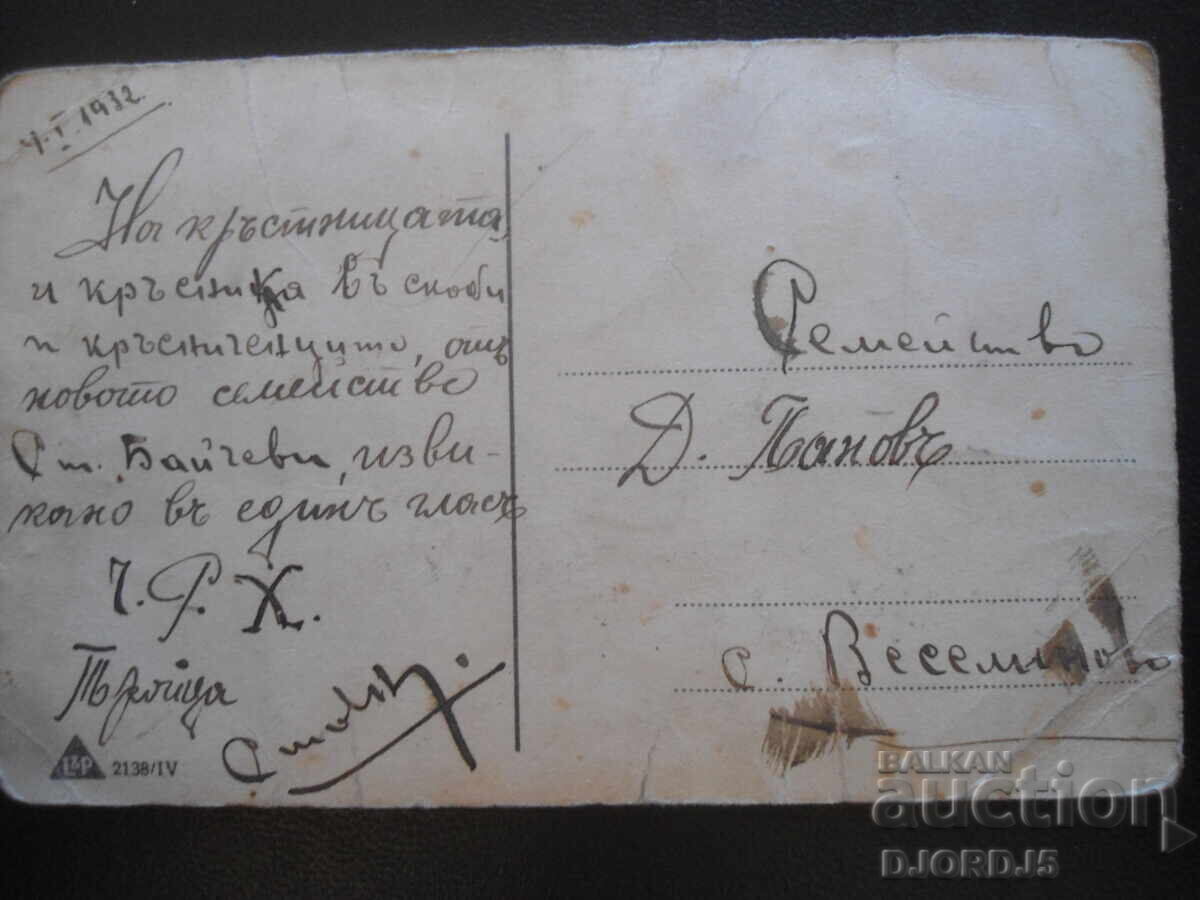 4.I.1932.
На кръстницата,
и кръсника въ скоби
и кръсниченцито, отъ
новото семейство
Ст. Байчеви, изви-
кано въ единъ гласъ
Ч. Р. Х.
2138/IV
Семейство
Д. Пановъ
с. Веселиново
BALKAN
auction
DJORDJ5